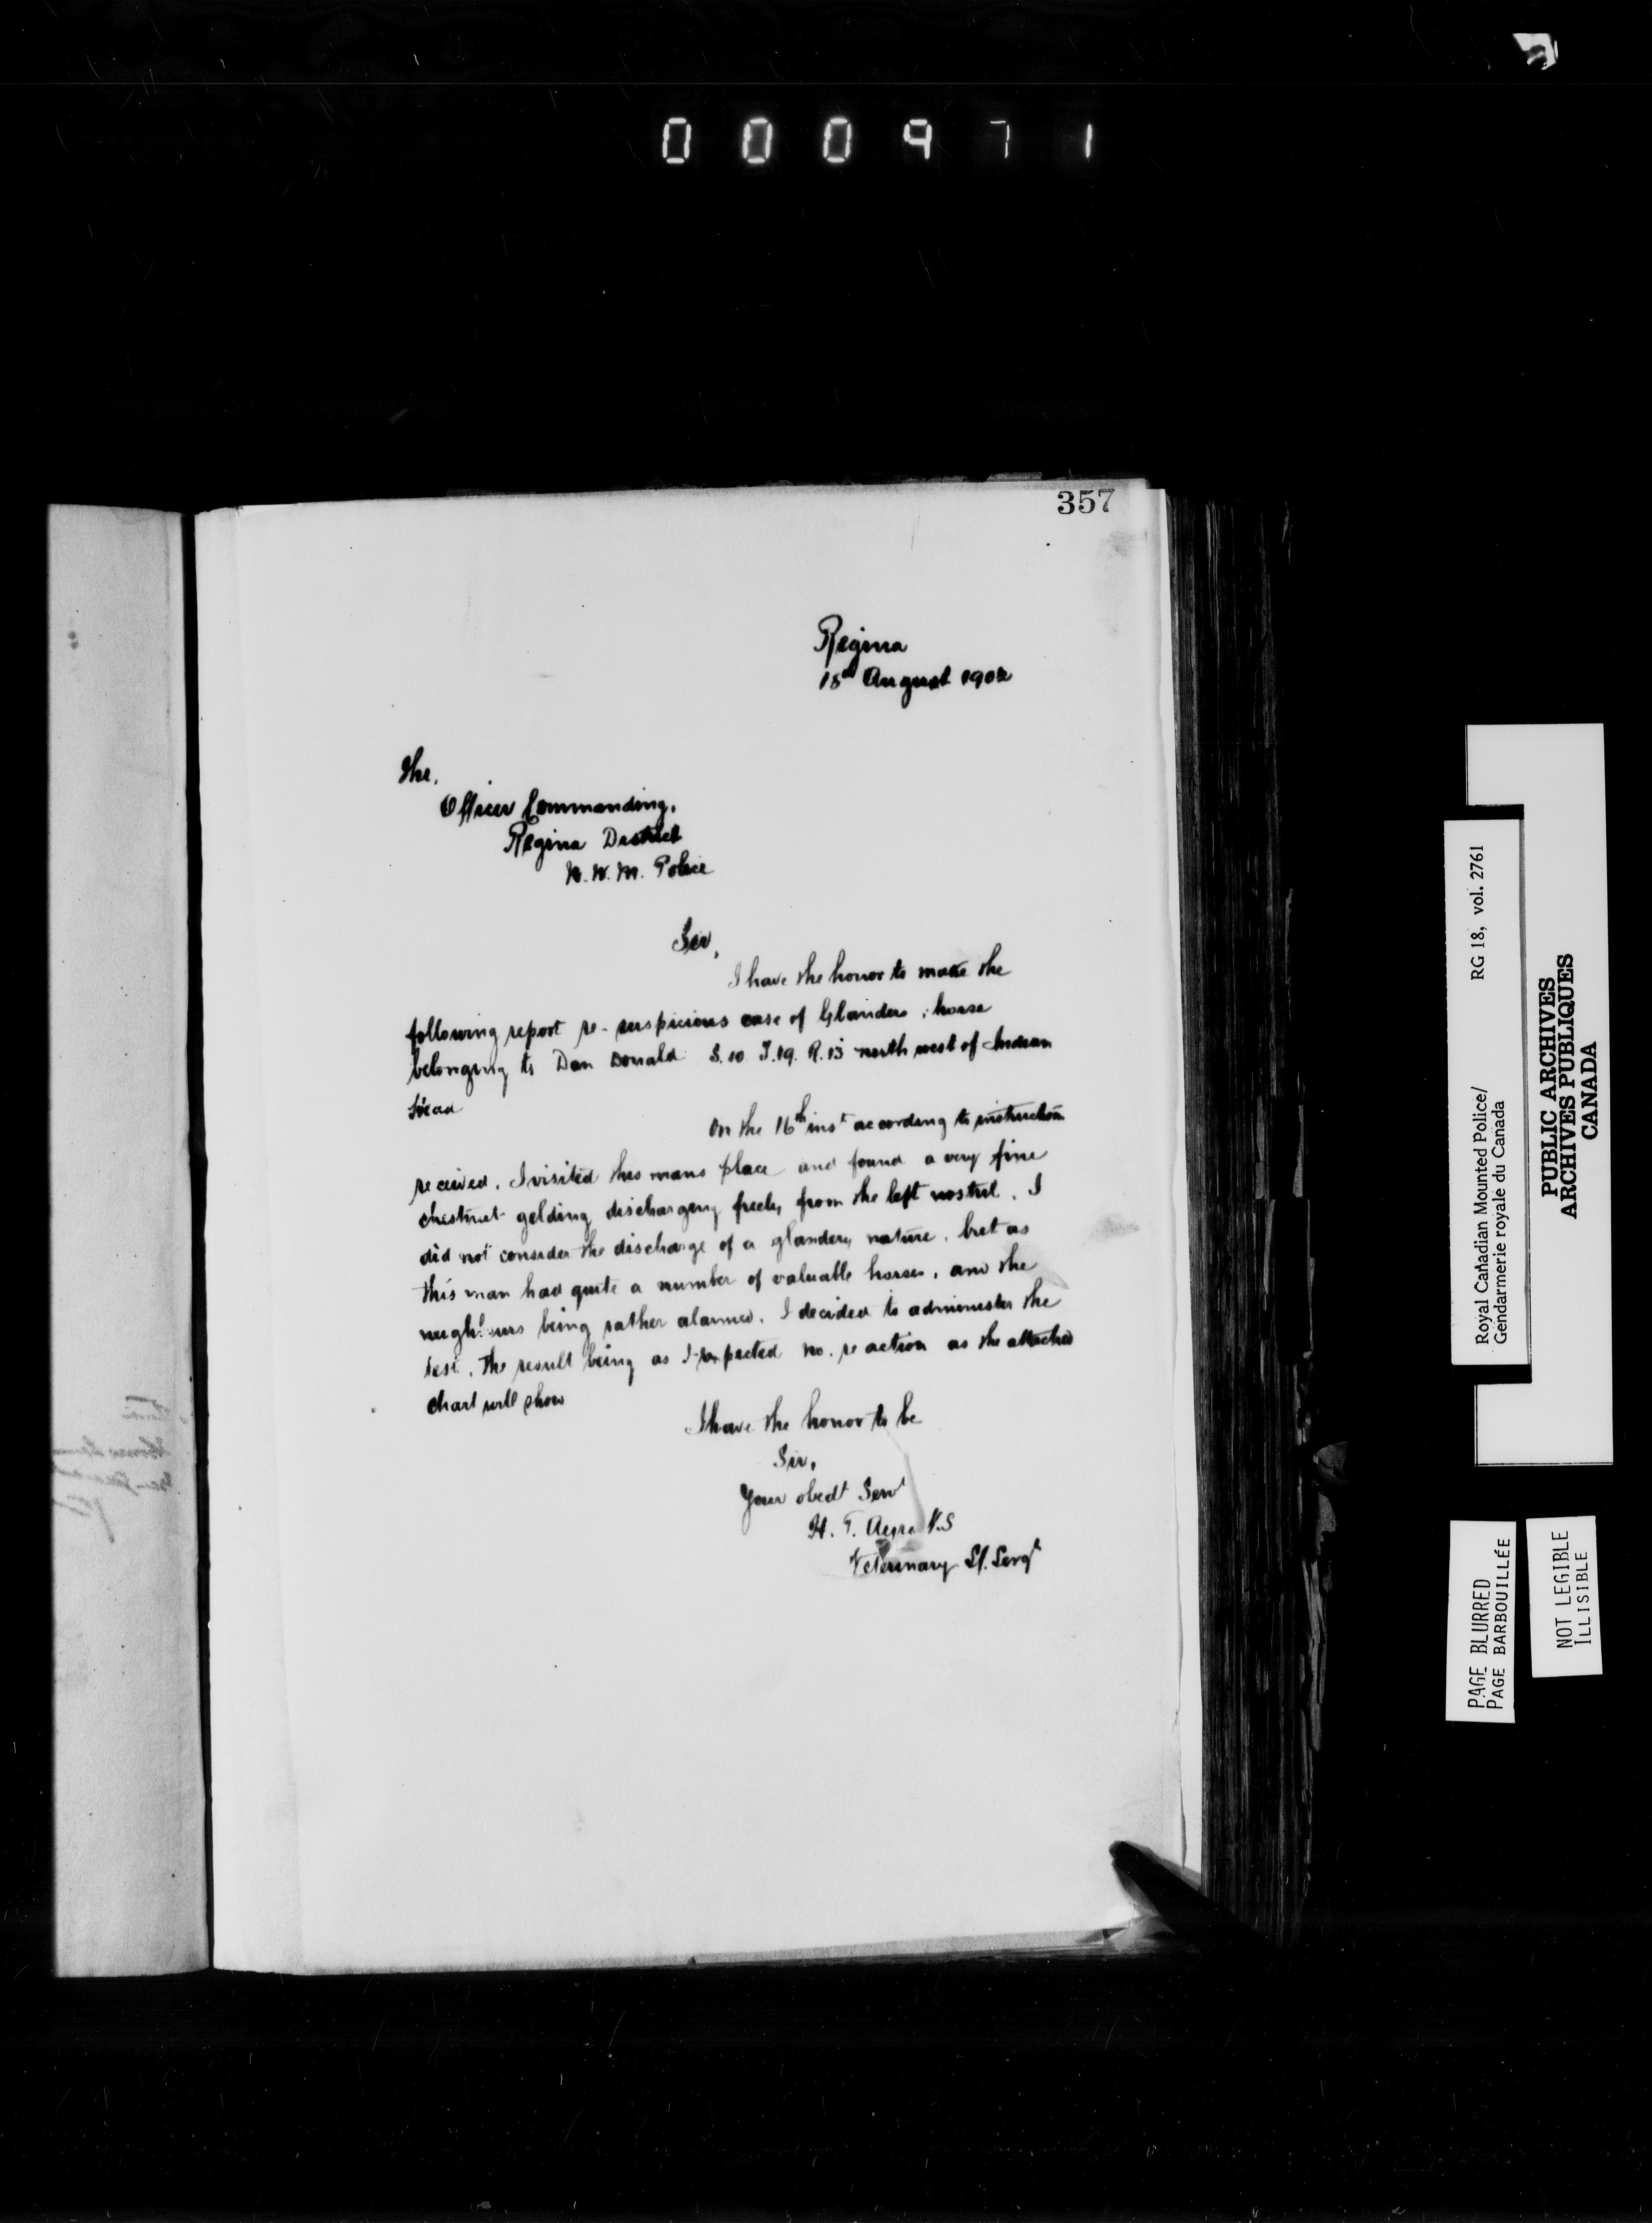 000971
357
Regina
18th August 1902
The,
Officer Commanding,
Regina District
N. W. M. Police
Sir,
I have the honor to make the
following report re- suspicious case of Glanders ; horse
belonging to Dan Donald S. 10 T. 19. R. 13 north west of Indian
Head
On the 16th inst according to instruction
received. I visited this mans place and found a very fine
chestnut gelding discharging freely from the left nostril. I
did not consider the discharge of a glandery nature. but as
this man had quite a number of valuable horses, and the
neighbours being rather alarmed. I decided to administer the
test. The result being as I expected no. reaction as the attached
chart will show
I have the honor to be
Sir,
Your obedt Servt
H. T. V.S
Veterinary S/. Sergt
Royal Canadian Mounted Police/ RG 18, vol. 2761
Gendarmerie royale du Canada
PUBLIC ARCHIVES
ARCHIVES PUBLIQUES
CANADA
PAGE BLURRED
PAGE BARBOUILLÉE
NOT LEGIBLE
ILLISIBLE